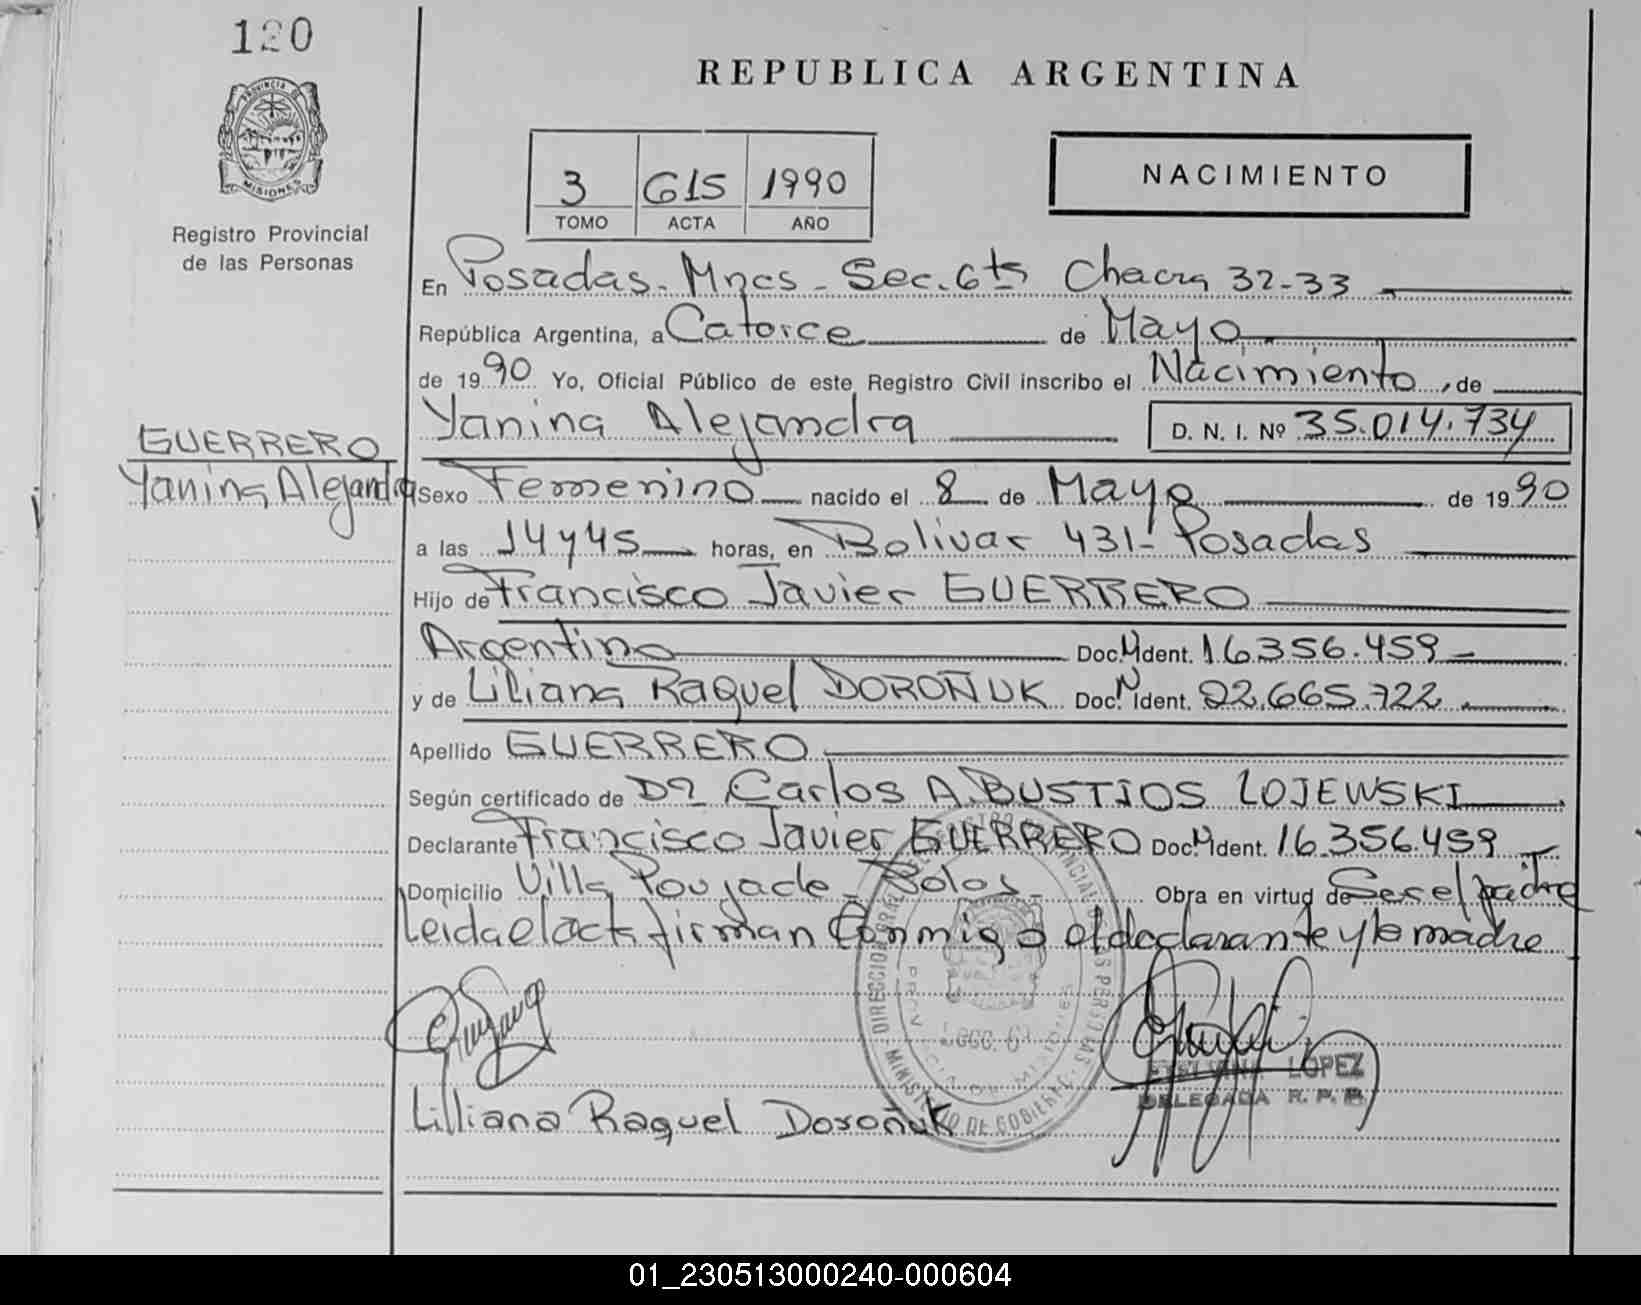 120
REPUBLICA ARGENTINA
PROVINCIA DE
MISIONES
Registro Provincial
de las Personas
3 615 1990
TOMO ACTA AÑO
NACIMIENTO
En Posadas. Mnes - Sec. 6ta Chacra 32-33
República Argentina, a Catorce de Mayo
de 1990 Yo, Oficial Público de este Registro Civil inscribo el Nacimiento, de
Yanina Alejandra D. N. I. Nº 35.014.734
GUERRERO
Yanina Alejandra
Sexo Femenino nacido el 8 de Mayo de 1990
a las 14 y 45 horas, en Bolivar 431- Posadas
Hijo de Francisco Javier GUERRERO
Argentino Doc. N Ident. 16.356.459
y de Liliana Raquel DOROÑUK Doc. N Ident. 22.665.722
Apellido GUERRERO
Según certificado de Dr Carlos A. BUSTIOS LOJEWSKI
Declarante Francisco Javier GUERRERO Doc. N Ident. 16.356.459
Domicilio Villa Poujade - Obra en virtud de Ser el padre
Leida el acta firman Conmigo el declarante y la madre
LOPEZ
DELEGADA R. P. P.
Lilliana Raquel Doroñuk
01_230513000240-000604